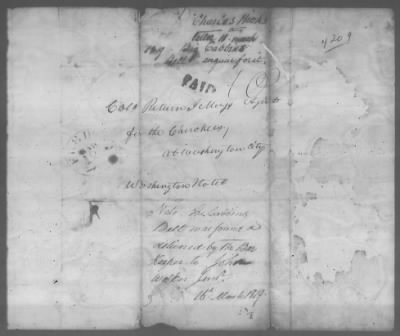 Charles Hicks
letter 11th march
1819
enquire for it.
PAID
4209
Colo Return J Meigs Agent
for the Cherokees,
at Washington City
Washington Hotel
Note The
Belt was found &
delivered by the Bar
Keeper to John
Walker Junr.
16 March 1819.